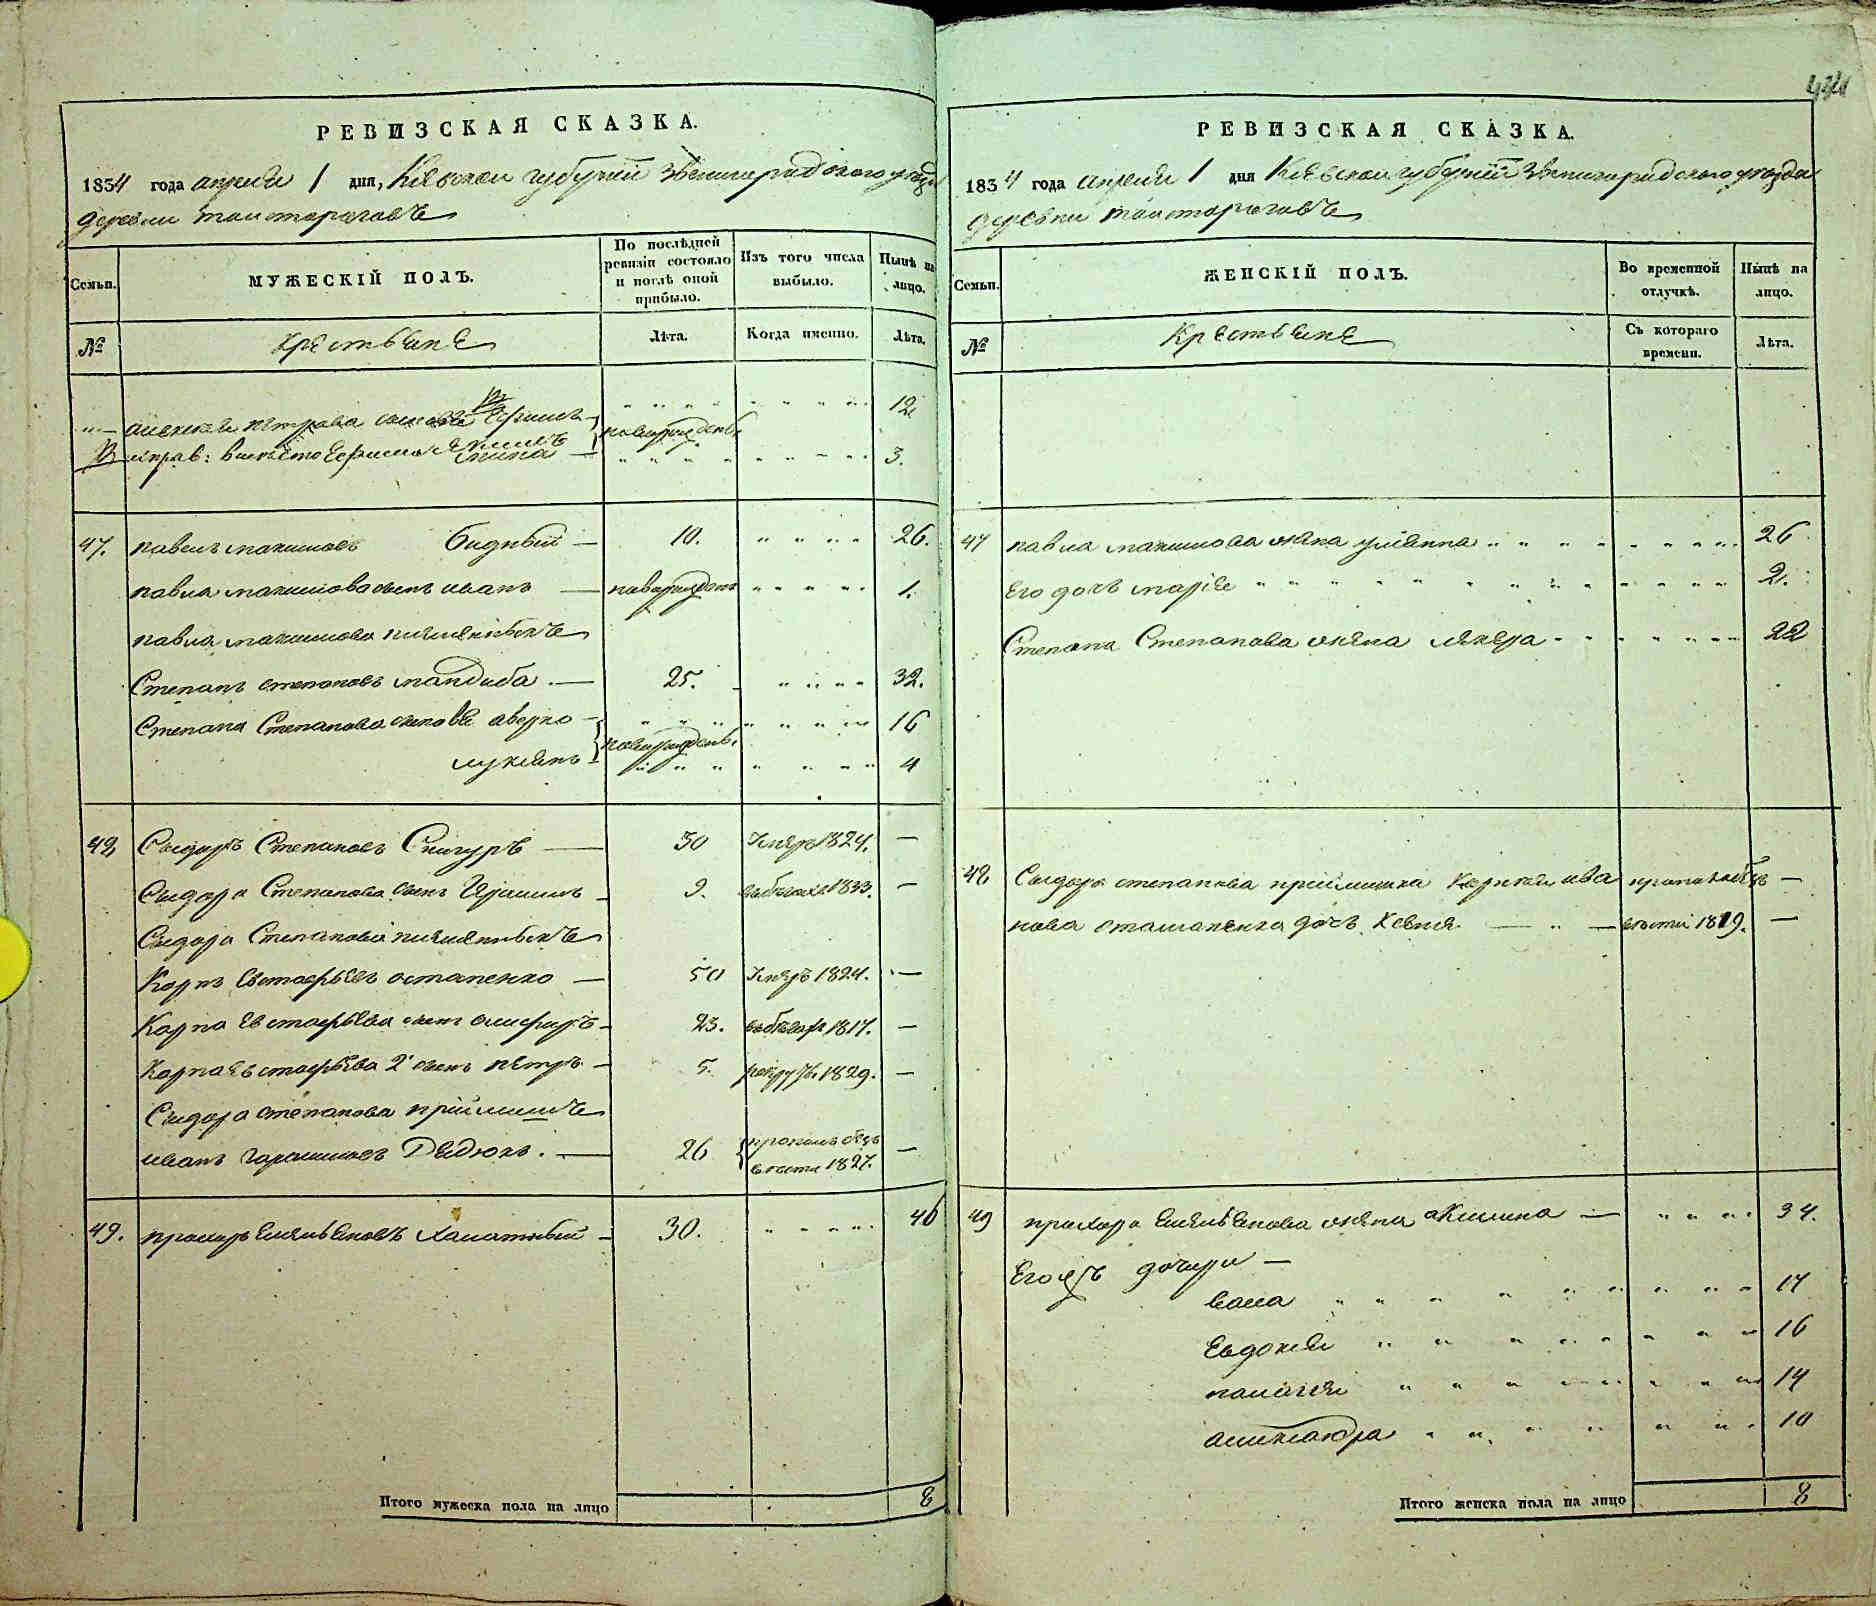 РЕВИЗСКАЯ СКАЗКА.
1834 года апреля 1 дня, Киевской губернии Звенигородского уезда
деревни толстороговъ
Семьи.
МУЖЕСКІЙ ПОЛЪ.
По послѣдней ревизіи состояло и послѣ оной прибыло.
Изъ того числа выбыло.
Нынѣ на лицо.
№
Крестьяне
Лѣта.
Когда именно.
Лѣта.
Алексея петрова сыновья Ефимъ 12
новорожден.
исправ: вместо Ефима Якимъ
3.
47. павелъ максимовъ бидный — 10. 26.
павла максимова сынъ иванъ — новорожденъ 1.
павла максимова племянникъ
Степанъ степановъ мандиба — 25. 32.
Степана Степанова сыновья аверко 16
новорожден.
лукьянъ 4
48 Сидоръ Степановъ Снигуръ — 30 1824. —
Сидора Степанова сынъ Герасимъ 9. въ бегах 1833. —
Сидора Степанова племянникъ
Карпъ Евстафьевъ остапенко — 50 1824. —
Карпа Евстафьева сынъ онифиръ 23. въ бегах 1817. —
Карпа Евстафьева 2й сынъ петръ 5. рекрут. 1829. —
Сидора степанова пріймышъ
иванъ Гарасимовъ Дедюхъ. — 26 пропалъ безъ вести 1827. —
49. прохоръ Емельяновъ Халатный 30. 46
Итого мужеска пола на лицо 8
РЕВИЗСКАЯ СКАЗКА.
1834 года апреля 1 дня Киевской губерніи Звенигородского уезда
деревни толстороговъ
Семьи.
ЖЕНСКІЙ ПОЛЪ.
Во временной отлучкѣ.
Нынѣ на лицо.
№
Крестьяне
Съ котораго времени.
Лѣта.
47 павла максимова жена ульянна 26
Его дочь марія 2.
Степана Степанова жена 22
48 Сидора степанова пріймышка ива пропала безъ —
нова осташенка дочь Ксенія вести 1819. —
49 прохора Емельянова жена акилина — 34.
Его дочери —
васса 17
Евдокия 16
палагея 14
александра 10
Итого женска пола на лицо 8